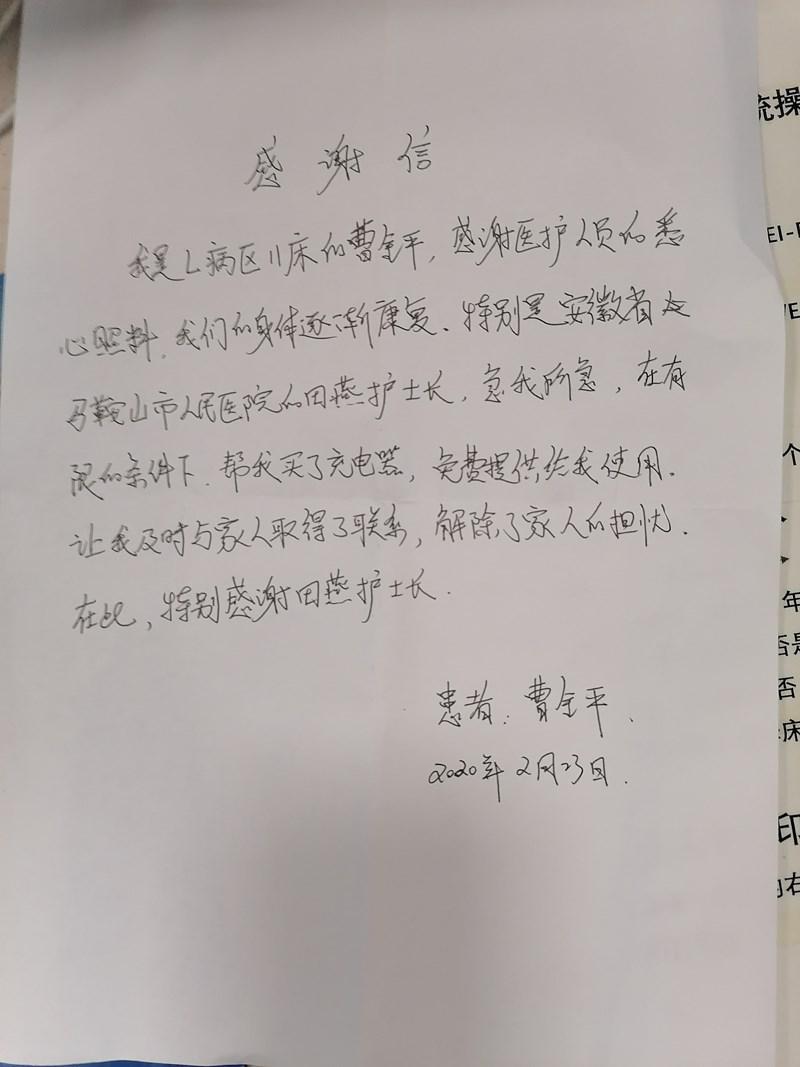 感谢信
我是L病区11床的曹金平，感谢医护人员的悉
心照料，我们的身体逐渐康复、特别是安徽省
马鞍山市人民医院的田燕护士长，急我所急，在有
限的条件下．帮我买了充电器，免费提供给我使用．
让我及时与家人取得了联系，解除了家人的担忧．
在此，特别感谢田燕护士长．
患者．曹金平．
2020年2月23日．
统操
EI-
个
年
否是
否
床
印
右